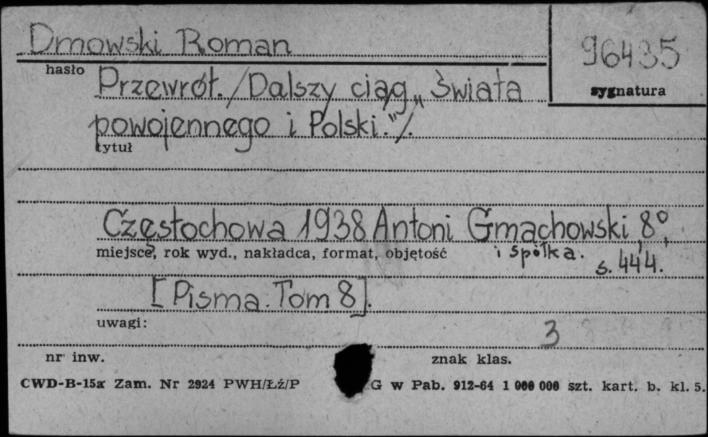 Dmowski Roman
96435
hasło
sygnatura
Przewrót. /Dalszy ciąg „Świata
powojennego i Polski."/.
tytuł
Częstochowa 1938 Antoni Gmachowski 8°,
i spółka.
miejsce, rok wyd., nakładca, format, objętość
s. 444.
[Pisma. Tom 8].
uwagi:
3
nr inw.
znak klas.
CWD-B-15a Zam. Nr 2924 PWH/Łź/P G w Pab. 912-64 1 000 000 szt. kart. b. kl. 5.